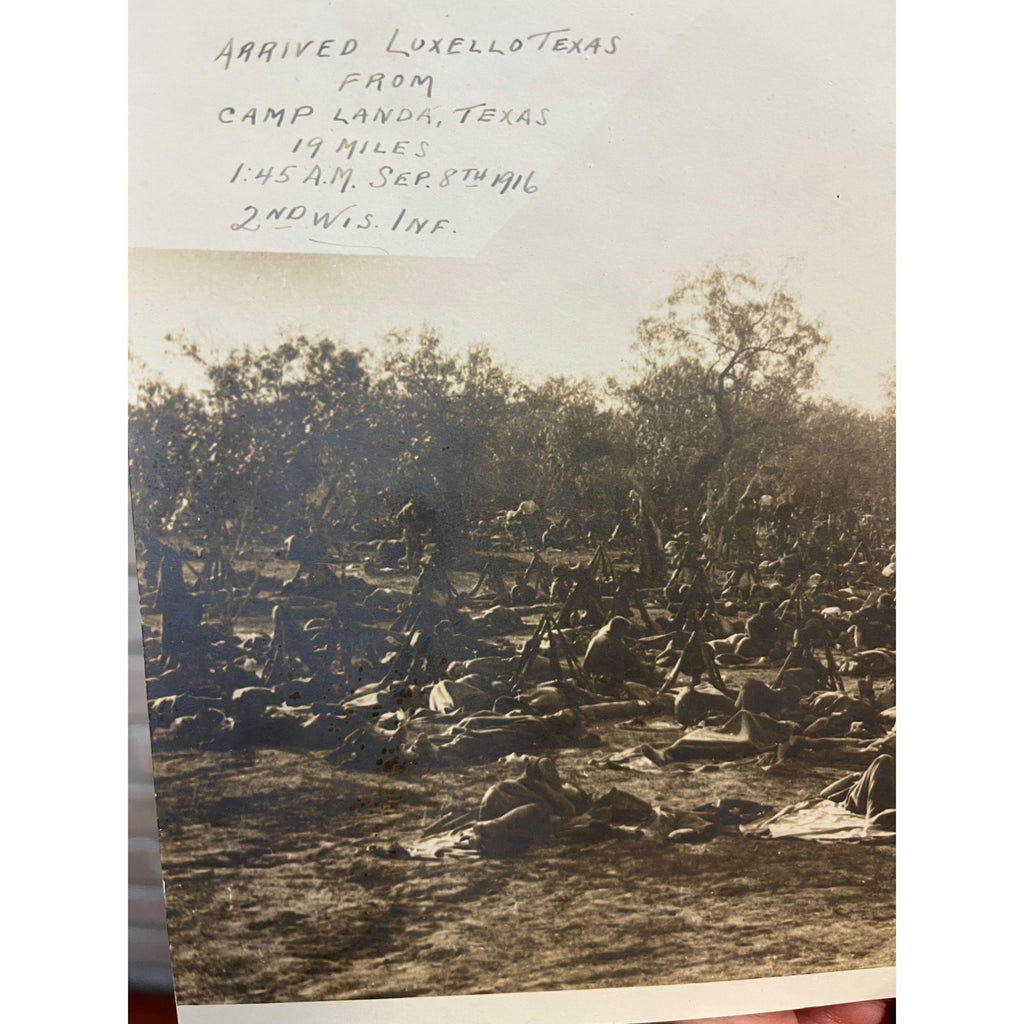 ARRIVED LUXELLO TEXAS
FROM
CAMP LANDA, TEXAS
19 MILES
1:45 A.M. SEP. 8TH 1916
2ND WIS. INF.